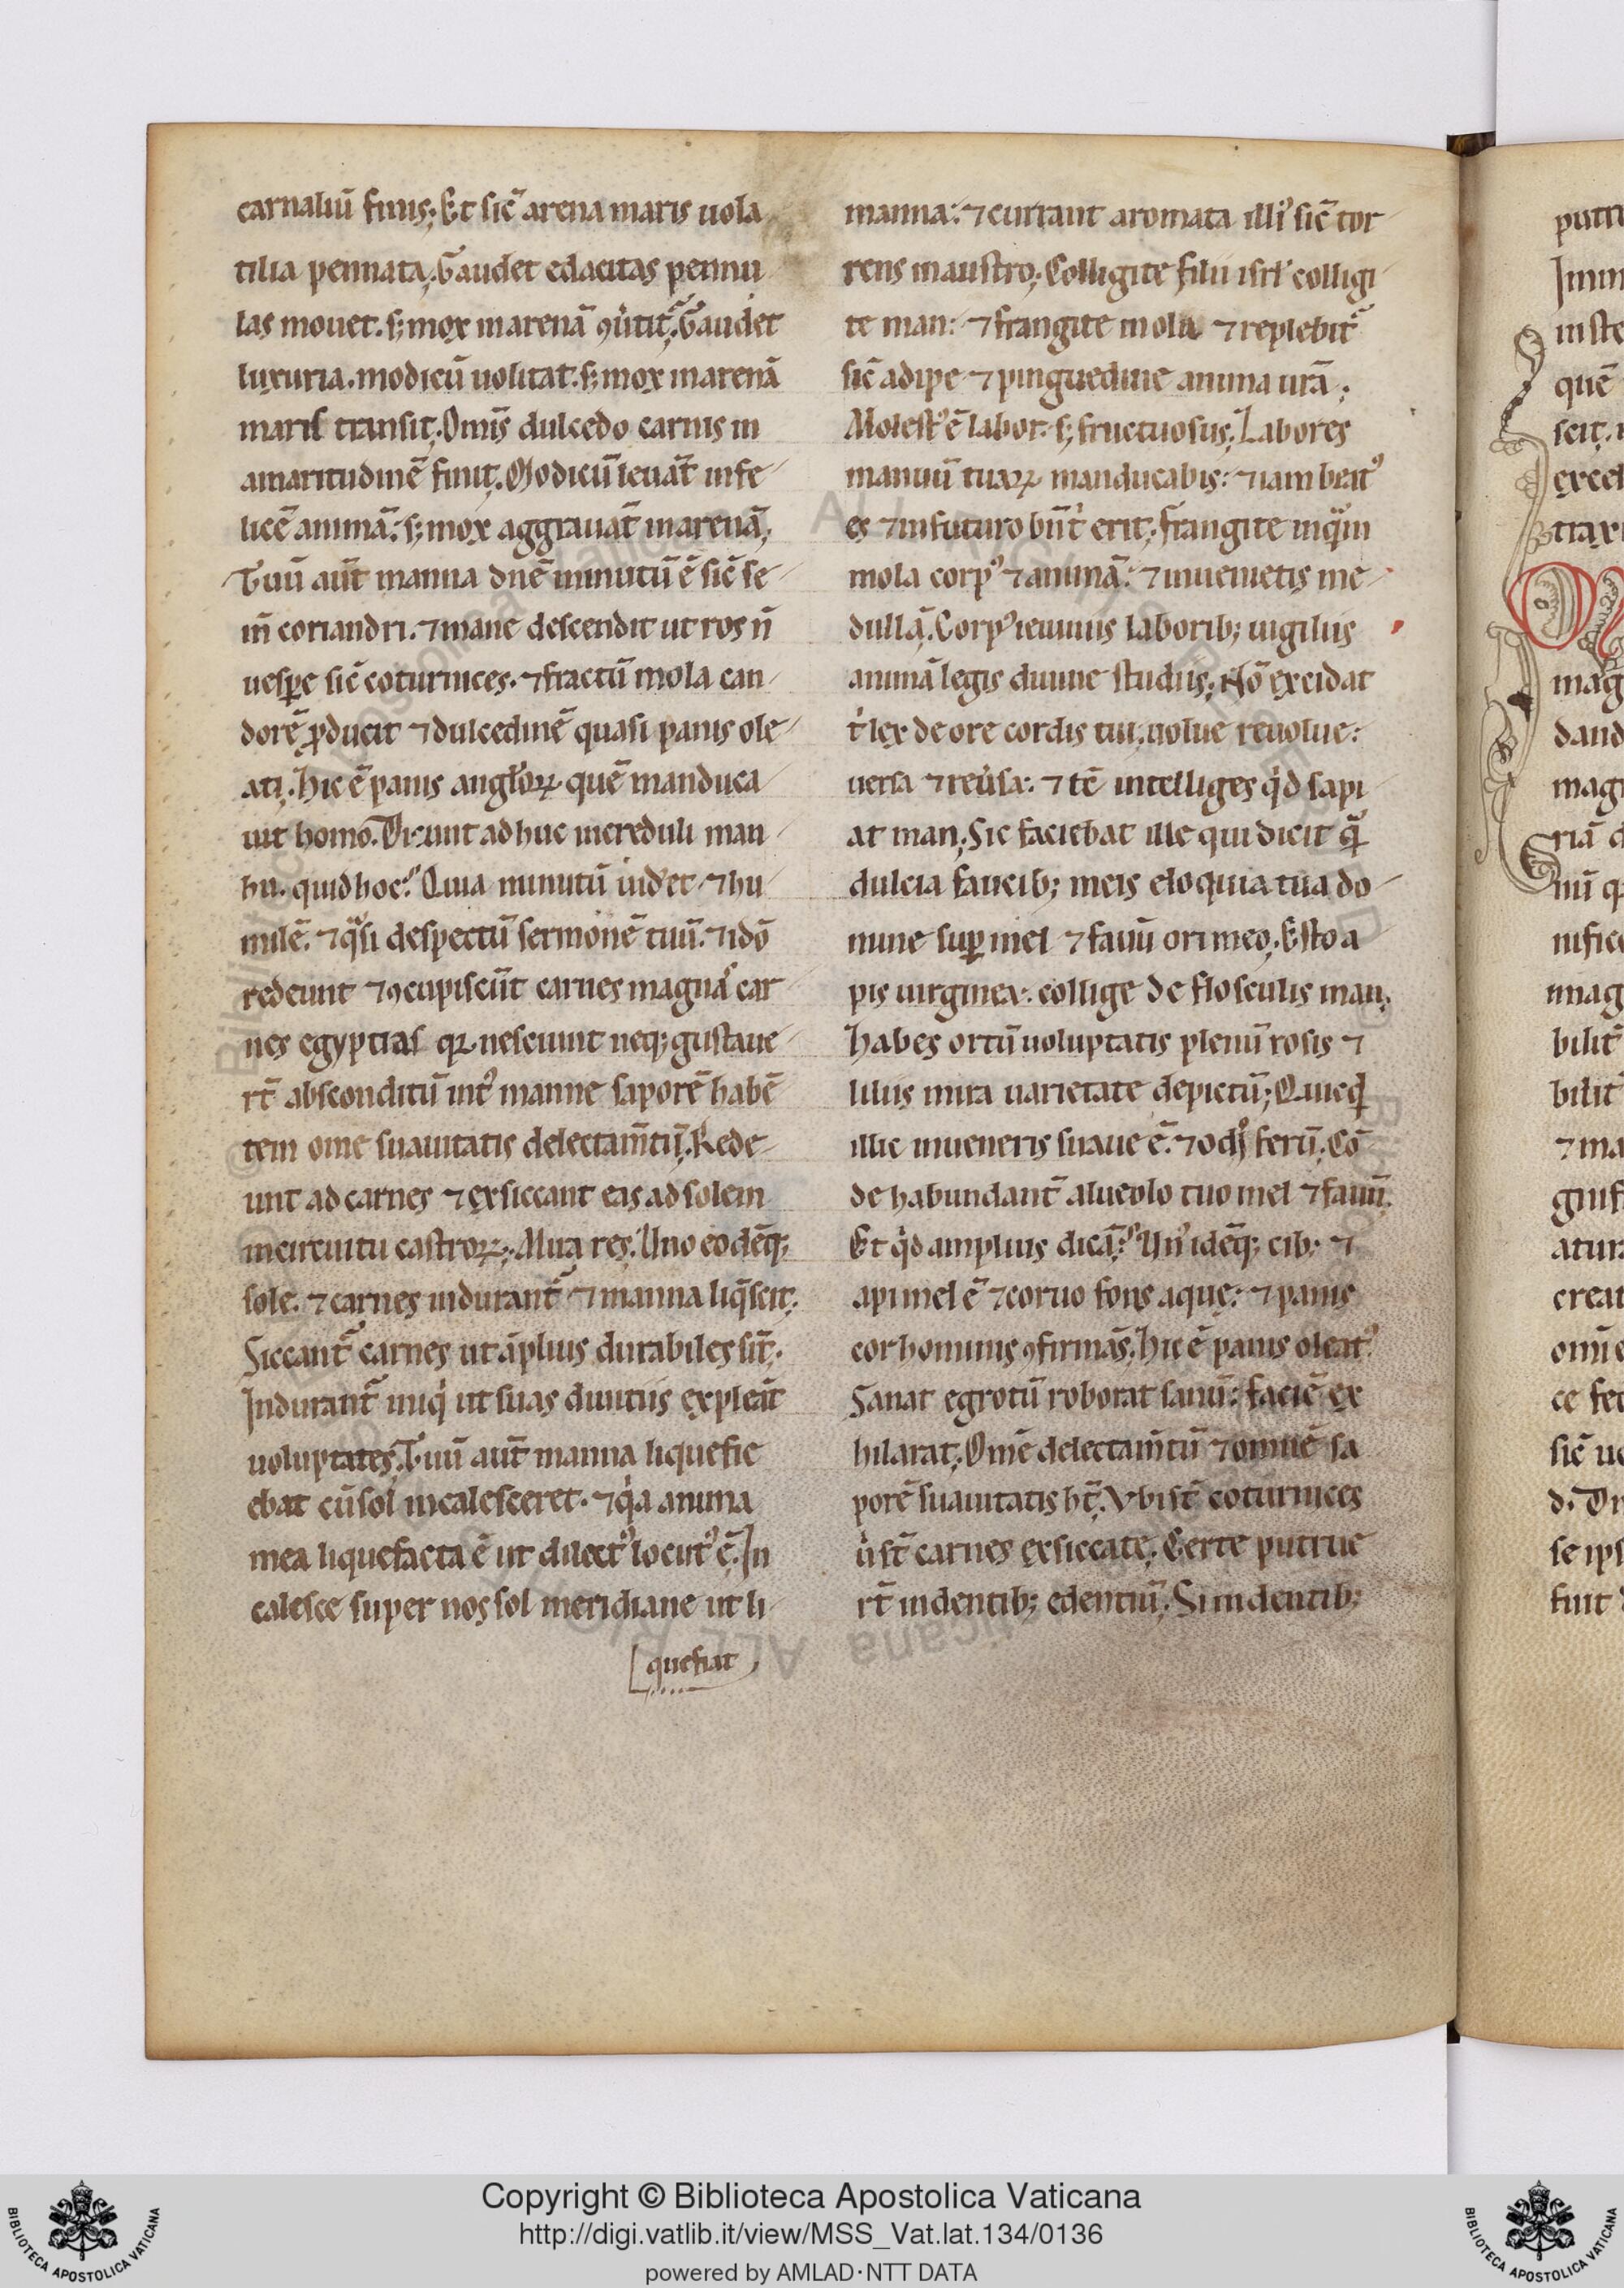 carnaliū finis; Et sic̄ arena maris uola
tilia pennata; Gaudet edacitas pennu
las mouet. s; mox in arenā ꝯuertit᷑; Gaudet
luxuria. modicū uolitat. s; mox in arenā
maris transit; Om̄is dulcedo carnis in
amaritudinē finit; Modicū leuāt infe
licē animā: s; mox aggrauāt in arenā;
Tuū aūt manna dn̄e minutū ē sic̄ se
m̄ coriandri. ⁊ mane descendit ut ros n̄
uesꝑe sic̄ coturnices. ⁊ fractū mola can
dorē ꝓducit ⁊ dulcedinē quasi panis ole
ati; Hic ē panis angl̓oꝝ quē manduca
uit homo. Dicunt adhuc increduli man
hu. quid hoc? Quia minutū uidet̉ ⁊ hu
milē. ⁊ qͣsi despectū sermonē tuū. ⁊ idō
redeunt ⁊ ꝯcupiscūt carnes magnas car
nes egyptias qꝛ nesciunt neqꝫ gustaue
rt̄ absconditū int᷒ manne saporē habē
tem om̄e suauitatis delectam̄tū; Rede
unt ad carnes ⁊ exsiccant eas ad solem
in circuitu castroꝝ; Mira res; Uno eodēqꝫ
sole. ⁊ carnes indurant᷑ ⁊ manna liq̄scit;
Siccant᷑ carnes ut āplius durabiles sīt.
Indurant᷑ iniqͥ ut suas diutius expleāt
uoluptates; Tuū aūt manna liquefie
ebat cū sol incalesceret. ⁊ qͥa anima
mea liquefacta ē ut dilect᷒ locut᷒ ē; In
calesce super nos sol meridiane ut li
quefiat
manna: ⁊ currant aromata illi᷒ sic̄ tor
rens in austro; Colligite filii isrl̓ colligi
te man: ⁊ frangite mola ⁊ replebit᷑
sic̄ adipe ⁊ pinguedine anima urā;
Molest᷒ ē labor. s; fructuosus; Labores
manuū tuaꝝ manducabis: ⁊ iam beat᷒
es ⁊ in futuro bn̄ t̉ erit; frangite inqͣm
mola corp᷒ ⁊ animā: ⁊ inuenietis me
dullā; Corp᷒ ieiuniis laborib; uigiliis
animā legis diuine studiis; Nō excidat
t̉ lex de ore cordis tui. uolue reuolue:
uersa ⁊ reu̓sa: ⁊ tc̄ intelliges qͥd sapi
at man; Sic faciebat ille qui dicit qͣ̄
dulcia faucib; meis eloquia tua do
mine suꝑ mel ⁊ fauū ori meo; Esto a
pis uirginea. collige de flosculis man;
habes ortū uoluptatis plenū rosis ⁊
liliis mira uarietate depictū; Quicqͥd
illic inueneris suaue ē. ⁊ odorͥferū; Cō
de habundant̄ alueolo tuo mel ⁊ fauū;
Et qͥd amplius dicā? Un᷒ idēqꝫ cib᷒ ⁊
api mel ē ⁊ coruo fons aquę: ⁊ panis
cor hominis ꝯfirmās; Hic ē panis oleat᷒
Sanat egrotū roborat sanū: faciē ex
hilarat; Om̄e delectam̄tū ⁊ omnē sa
porē suauitatis ht̄; Vbi st̄ coturnices
ùst̄ carnes exsiccate; Certe putrue
rt̄ in dentib; edentiū; Si in dentib;
Copyright © Biblioteca Apostolica Vaticana
http://digi.vatlib.it/view/MSS_Vat.lat.134/0136
powered by AMLAD·NTT DATA
BIBLIOTECA APOSTOLICA VATICANA
BIBLIOTECA APOSTOLICA VATICANA